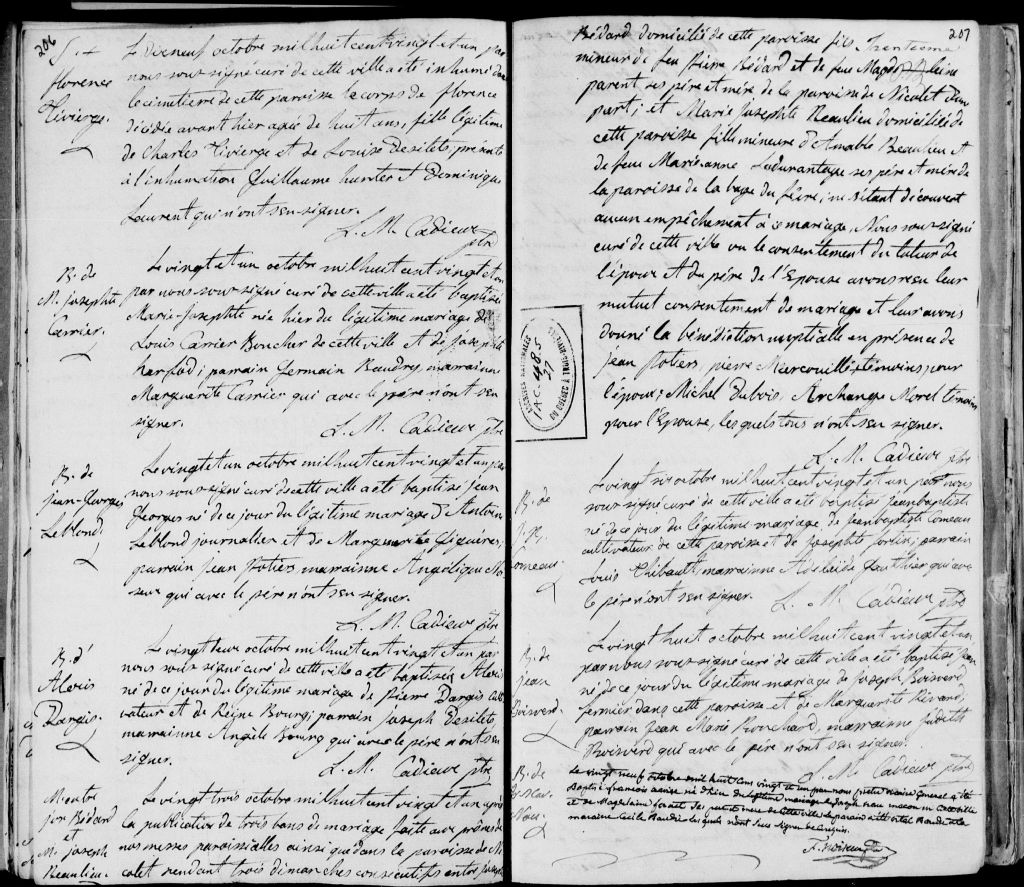 206
S. +
florence
Vivierge.
Le dixneuf octobre mil huit cent vingt et un par
nous sous-signé curé de cette ville a été inhumé dans
le cimetière de cette paroisse le corps de florence
décédée avant hier agée de huit ans, fille légitime
de Charles Vivierge et de Louise Desilets, présents
à l'inhumation Guillaume hunter et Dominique
Laurent qui n'ont seu signer.
L. M. Cadieux ptre
B. de
M. Josephte
Carrier.
Le vingt et un octobre mil huit cent vingt et un
par nous sous-signé curé de cette ville a été baptisée
Marie-Josephte née hier du légitime mariage de
Louis Carrier Boucher de cette ville et de Josephte
parrain Germain Beaudry, marrainne
Marguerite Carrier qui avec le père n'ont seu
signer.
L. M. Cadieux ptre
B. de
Jean-Georges
Leblond
Le vingt et un octobre mil huit cent vingt et un par
nous sous-signé curé de cette ville a été baptisé jean
Georges né de ce jour du légitime mariage d'Antoine
Leblond journalier et de Marguerite
parrain jean Potiers marrainne Angélique
qui avec le père n'ont seu signer.
L. M. Cadieux ptre
B. d'
Alexis
Dargis.
Le vingt deux octobre mil huit cent vingt et un par
nous sous-signé curé de cette ville a été baptisée Alexis
né de ce jour du légitime mariage de pierre Dargis culti
vateur et de Reine Bourg; parrain Joseph Desilets,
marrainne Angèle Bourg qui avec le père n'ont seu
signer.
L. M. Cadieux ptre
M. entre
jos Bédard
et
M. Joseph
Beaulieu.
Le vingt trois octobre mil huit cent vingt et un après
la publication de trois bans de mariage faite aux prônes de
nos messes paroissiales ainsi que dans la paroisse de Ni
colet pendant trois dimanches consécutifs entre joseph
207
Bédard domicilié de cette paroisse fils
mineur de feu pierre Bédard et de feue Magdeleine
parent ses père et mère de la paroisse de Nicolet d'une
part; et Marie Josephte Beaulieu domiciliée de
cette paroisse fille mineure d'Amable Beaulieu et
de feue Marie-anne Ladurantaye ses père et mère de
la paroisse de la baye du febvre; ne s'étant découvert
aucun empêchement à ce mariage, Nous sous-signé
curé de cette ville vu le consentement du tuteur de
l'époux et du père de l'Epouse avons reçu leur
mutuel consentement de mariage et leur avons
donné la bénédiction nuptiale en présence de
jean Potiers, pierre Marcouillé témoins pour
l'époux; Michel Dubois, Archange Morel témoins
pour l'Epouse, lesquels tous n'ont seu signer.
L. M. Cadieux ptre
ARCHIVES NATIONALES
IAC-485
27
DU QUEBEC A MONTREAL
B. de
J. B.
Comeau.
Le vingt six octobre mil huit cent vingt et un par nous
sous-signé curé de cette ville a été baptisé jean baptiste
né de ce jour du légitime mariage de jean baptiste Comeau
cultivateur de cette paroisse et de Josephte fortin; parrain
Louis Thibault, marrainne Adelaide Gauthier qui avec
le père n'ont seu signer.
L. M. Cadieux ptre
B. de
jean
Boisverd.
Le vingt huit octobre mil huit cent vingt et un
par nous sous-signé curé de cette ville a été baptisé jean
né de ce jour du légitime mariage de Joseph Boisverd
fermier dans cette paroisse et de Marguerite Rivard;
parrain Jean Marie Brouchard, marrainne Judith
Boisverd qui avec le père n'ont seu signer.
L. M. Cadieux ptre
B. de
Le vingt neuf octobre mil huit cent vingt et un par nous
Baptisé francois né d'hier du légitime mariage de
et de Magdelaine de cette ville le parain a été vital
maraine lesquels n'ont seu signer